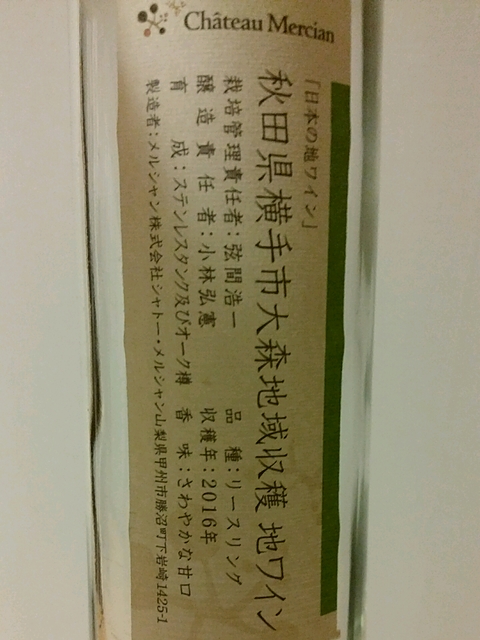 Château Mercian
「日本の地ワイン」
秋田県横手市大森地域収穫 地ワイン
栽培管理責任者：弦間浩一 品種：リースリング
醸造責任者：小林弘憲 収穫年：2016年
育成：ステンレスタンク及びオーク樽 香味：さわやかな甘口
製造者：メルシャン株式会社シャトー・メルシャン山梨県甲州市勝沼町下岩崎1425-1